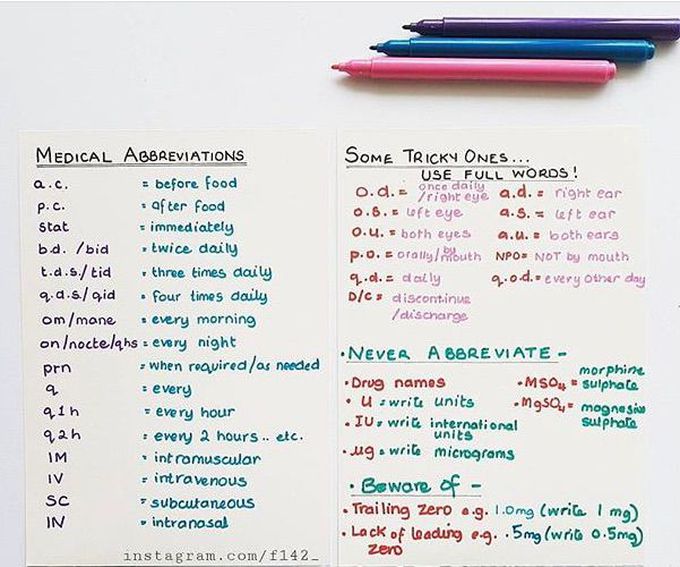 MEDICAL ABBREVIATIONS
a.c. = before food
p.c. = after food
stat = immediately
b.d. /bid = twice daily
t.d.s./tid = three times daily
q.d.s/qid = four times daily
om/mane = every morning
on/nocte/qhs = every night
prn = when required/as needed
q = every
q1h = every hour
q2h = every 2 hours.. etc.
IM = intramuscular
IV = intravenous
SC = subcutaneous
IN = intranasal
instagram.com/f142_
SOME TRICKY ONES...
USE FULL WORDS!
o.d. = once daily /right eye a.d. = right ear
o.s. = left eye a.s. = left ear
o.u. = both eyes a.u. = both ears
p.o. = orally/by mouth NPO = NOT by mouth
q.d. = daily q.o.d. = every other day
D/C = discontinue
/discharge
• NEVER ABBREVIATE -
• Drug names
• U = write units
• IU = write international
units
• µg = write micrograms
• MSO4 = morphine sulphate
• MgSO4 = magnesium sulphate
• Beware of -
• Trailing zero e.g. 1.0mg (write 1 mg)
• Lack of leading e.g. .5mg (write 0.5mg)
zero